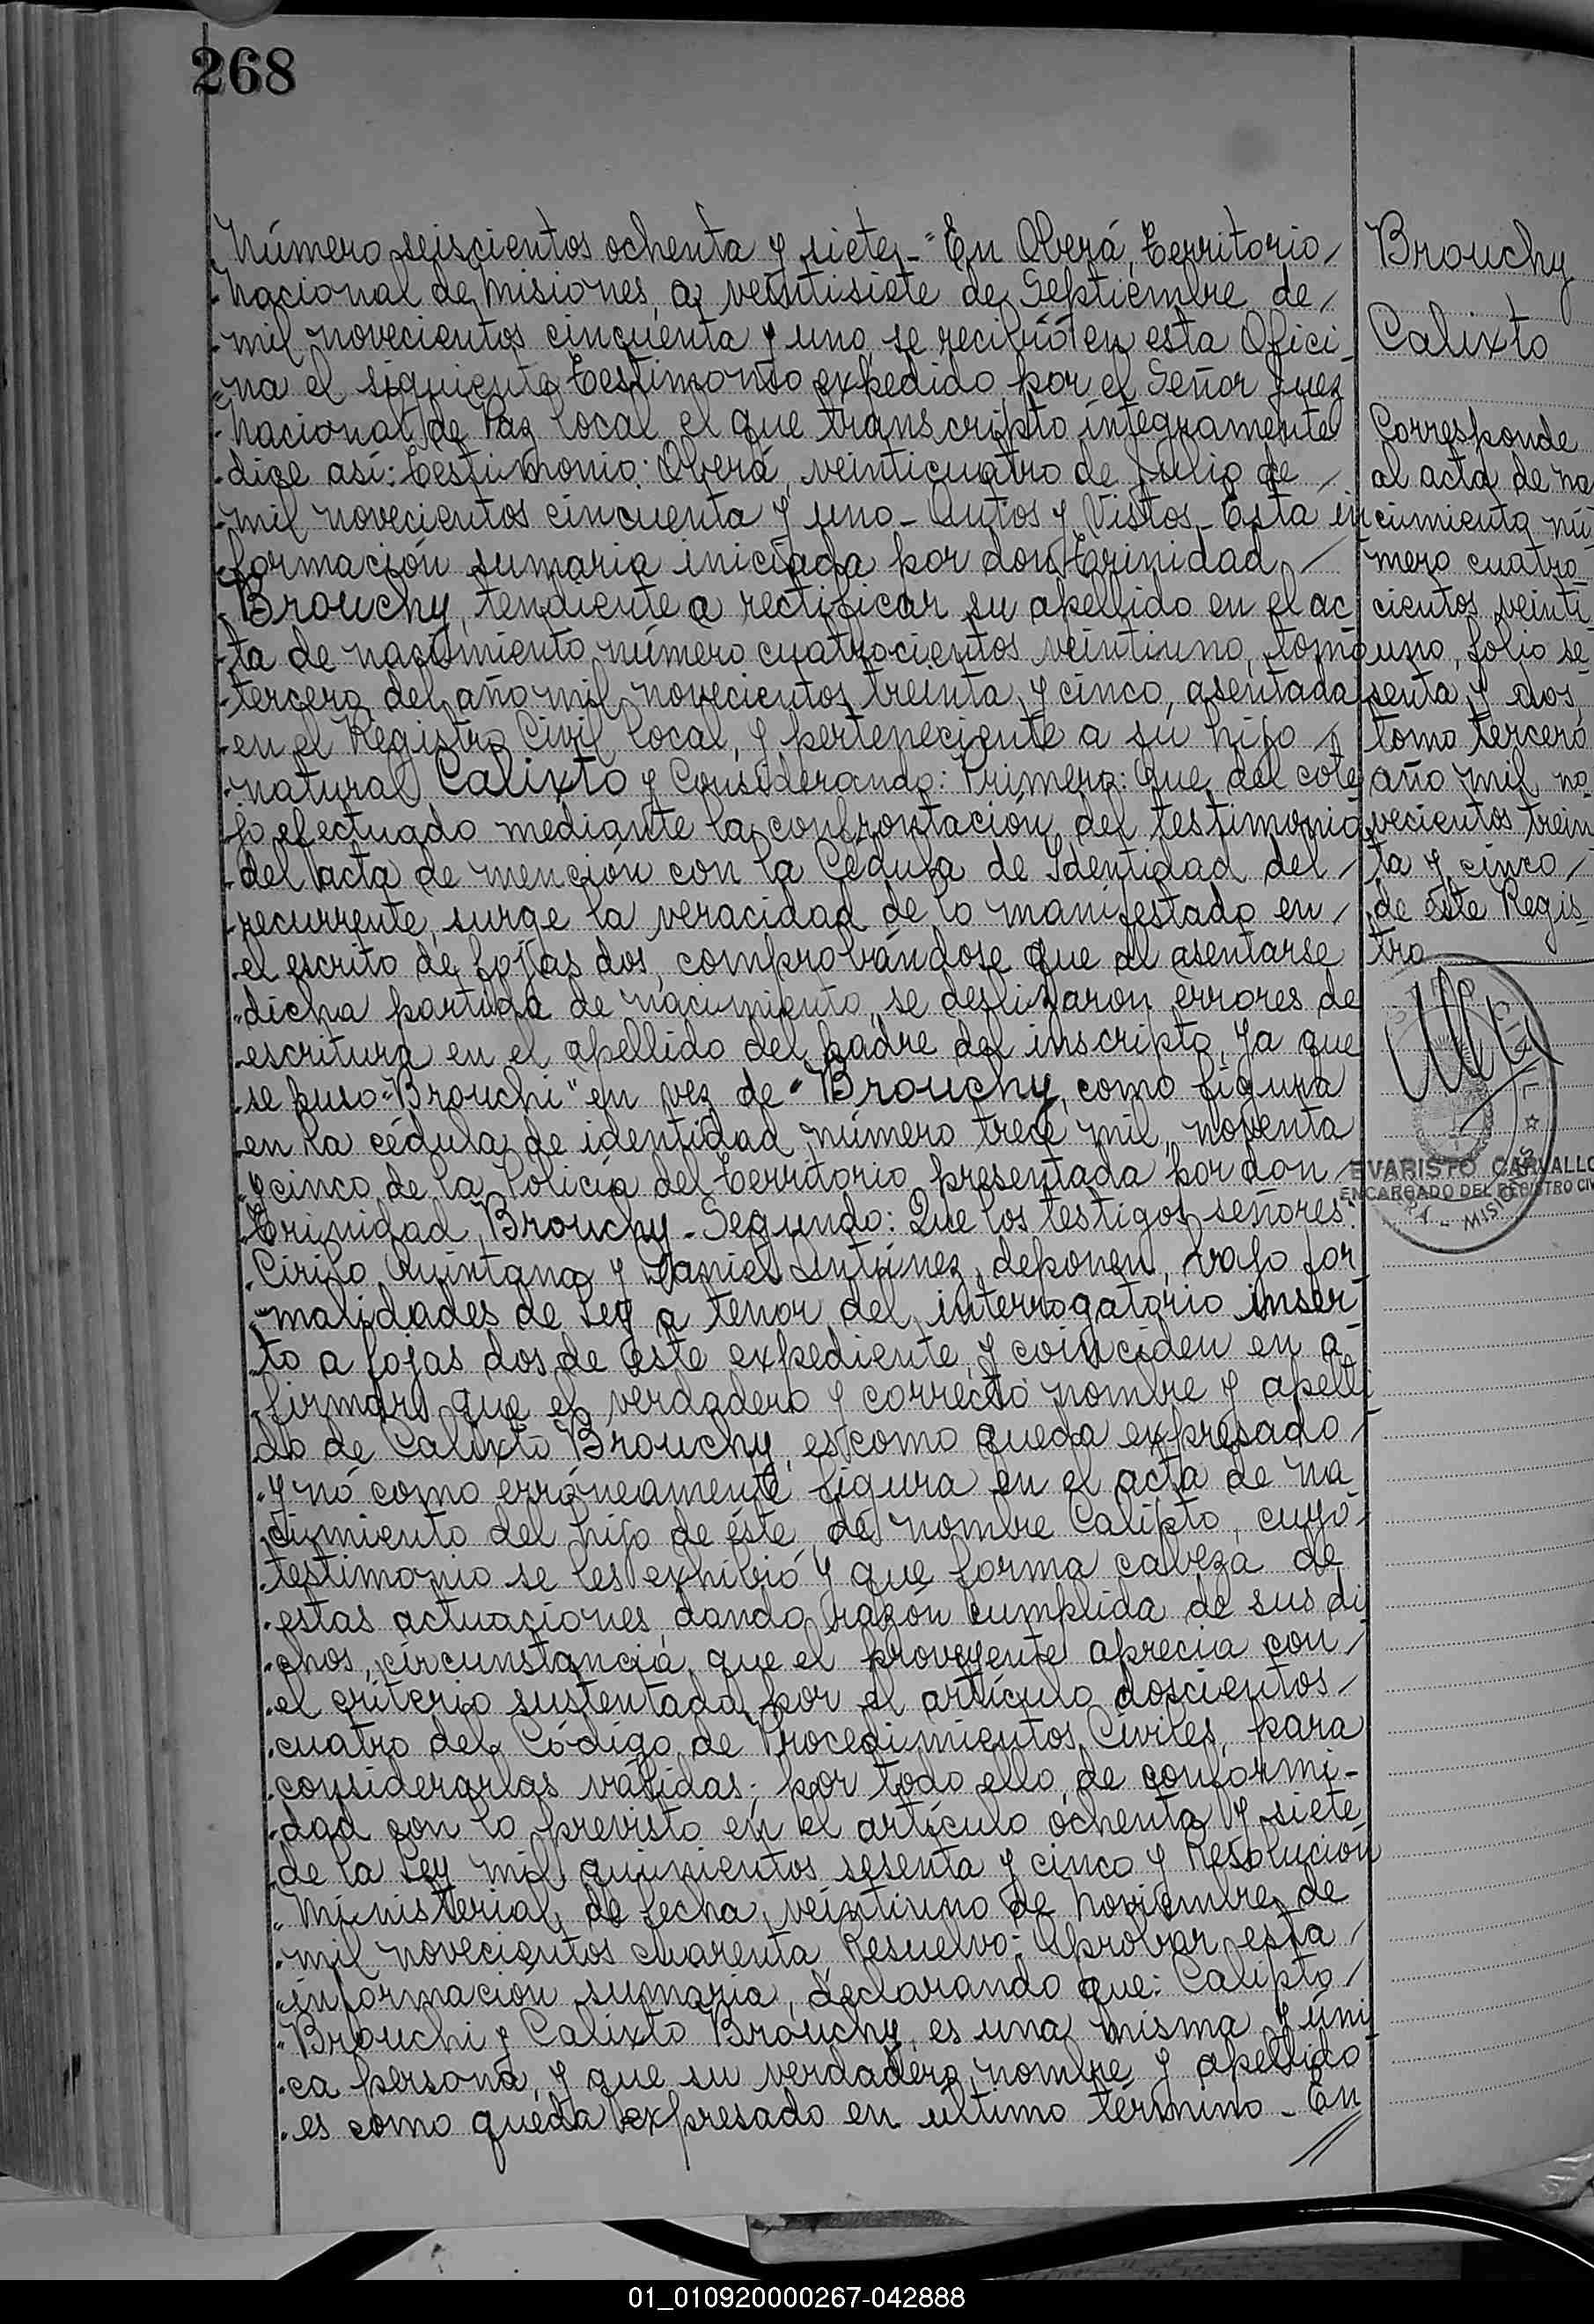 268
Número seiscientos ochenta y siete - "En Oberá, Territorio
Nacional de Misiones, a veintisiete de Septiembre de
mil novecientos cincuenta y uno, se recibió en esta Ofici-
na el siguiente Testimonio expedido por el Señor Juez
Nacional de Paz local el que transcripto íntegramente
dice así: Testimonio: Oberá, veinticuatro de Julio de
mil novecientos cincuenta y uno - Autos y Vistos - Esta in
formación sumaria iniciada por don Trinidad
Brouchy, tendiente a rectificar su apellido en el ac
ta de nacimiento número cuatrocientos veintiuno, tomo
tercero del año mil novecientos treinta y cinco, asentada
en el Registro Civil local, y perteneciente a su hijo
natural Calixto y Considerando: Primero: Que del cote
jo efectuado mediante la confrontación del testimonio
del acta de mención con la Cédula de Identidad del
recurrente, surge la veracidad de lo manifestado en
el escrito de fojas dos, comprobándose que al asentarse
dicha partida de nacimiento, se deslizaron errores de
escritura en el apellido del padre del inscripto, ya que
se puso "Brouchi" en vez de "Brouchy, como figura
en la cédula de identidad número trece mil noventa
y cinco de la Policía del Territorio presentada por don
Trinidad Brouchy - Segundo: Que los testigos señores:
Cirilo Quintana y Daniel Antúnez, deponen, bajo for
malidades de Ley a tenor del interrogatorio inser
to a fojas dos de este expediente, y coinciden en a-
firmar que el verdadero y correcto nombre y apelli
do de Calixto Brouchy, es como queda expresado
y nó como erróneamente figura en el acta de na
cimiento del hijo de éste, de nombre Calipto, cuyo
testimonio se les exhibió y que forma cabeza de
estas actuaciones, dando razón cumplida de sus di
chos, circunstancia, que el proveyente aprecia con
el criterio sustentado por el artículo doscientos
cuatro del Código de Procedimientos Civiles, para
considerarlas válidas; por todo ello, de conformi-
dad con lo previsto en el artículo ochenta y siete
de la Ley mil quinientos sesenta y cinco y Resolución
Ministerial de fecha veintiuno de Noviembre de
mil novecientos cuarenta, Resuelvo: Aprobar esta
información sumaria, declarando que: Calipto
Brouchi y Calixto Brouchy, es una misma y úni
ca persona, y que su verdadero nombre y apellido
es como queda expresado en último término - En
Brouchy
Calixto
Corresponde
al acta de na
cimiento nú-
mero cuatro-
cientos veinti-
uno, folio se-
senta y dos,
tomo tercero
año mil no-
vecientos trein
ta y cinco
de este Regis-
tro
CIVIL
EVARISTO CARVALLO
ENCARGADO DEL REGISTRO CIV
MISIO
01_010920000267-042888